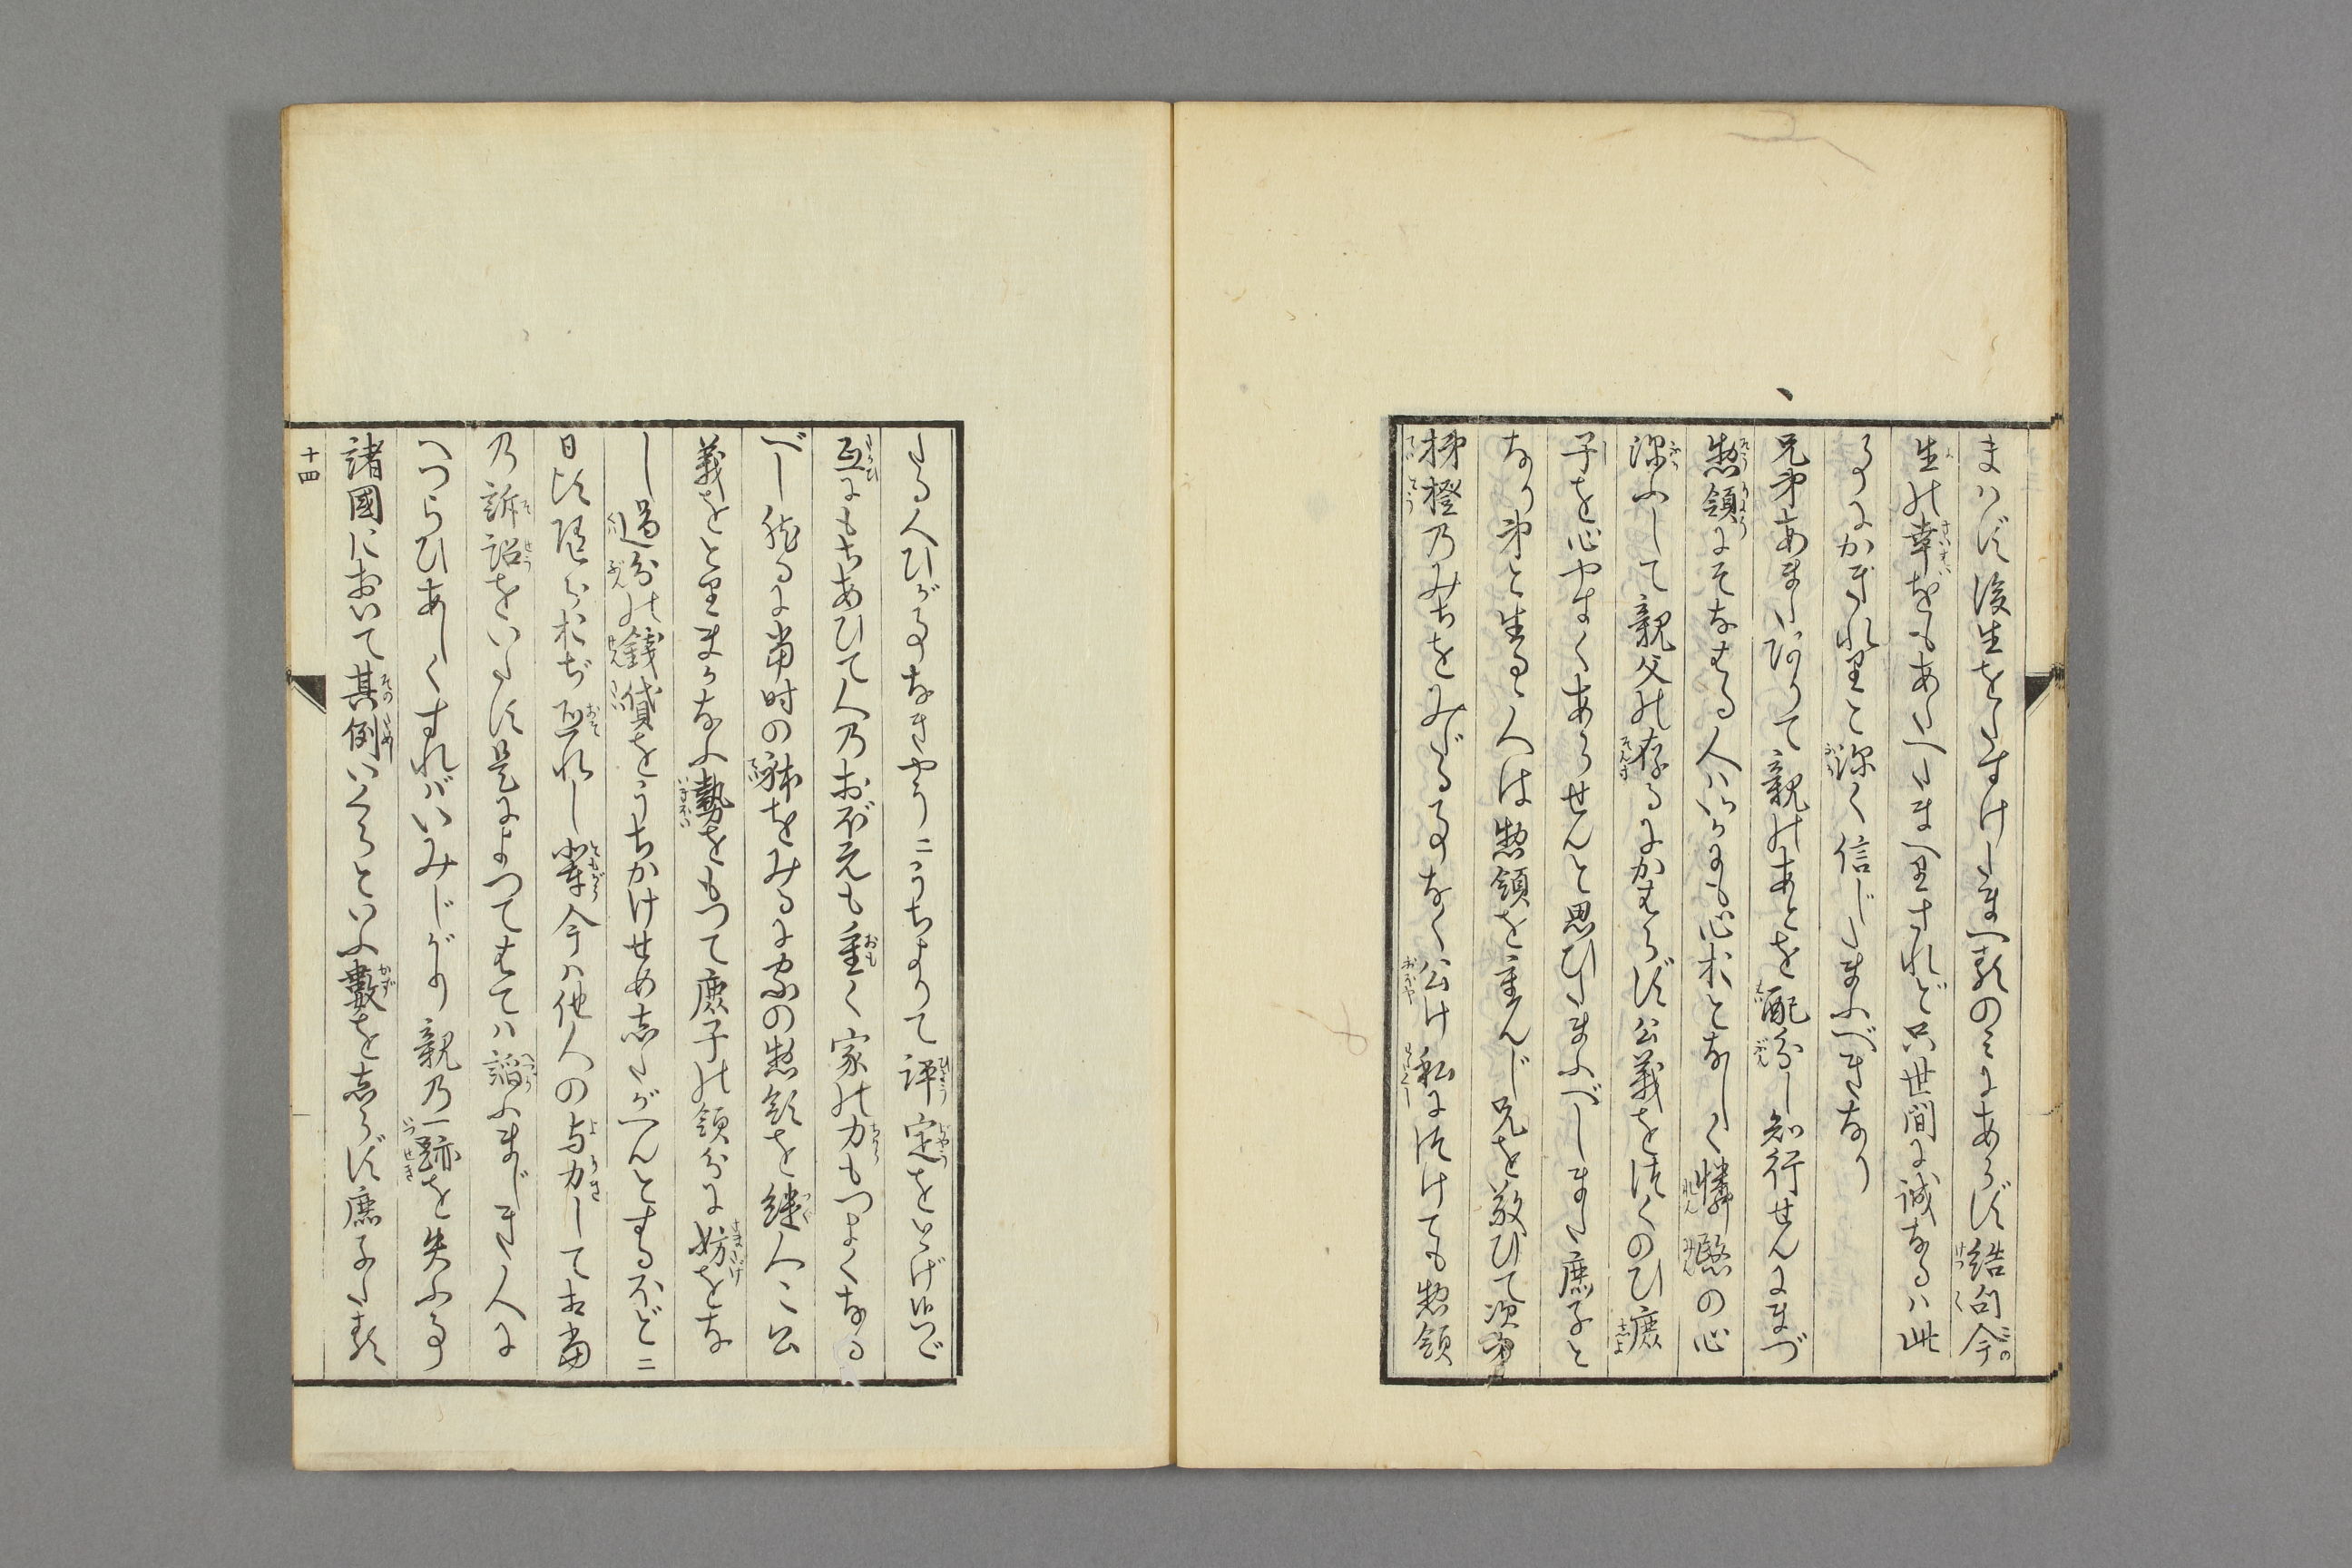 まハず後生をたすけたまへるのミにあらず結句今
生の幸をもあたへたまへりされど只世間に誠なるハ此
事にかぎれりと深く信じたまふべきなり
兄弟あまたありて親のあとを配分し知行せんにまづ
惣領にそなはる人ハいかにも心おとなしく憐愍の心
深ふして親父の存るにかはらず公義をつくのひ庶
子を心やすくあらせんと思ひたまふべしまた庶子と
なり弟と生るゝ人は惣領を主んじ兄を敬ひて次第
梯橙乃みちをみだる事なく公け私につけても惣領
たる人ひが事なきやうニうちよりて評定をとげ
互にもちあひて人乃おぼえも重く家の力もつよくなる
べし然るに当时の躰をみるに家の惣領を継人ハ公
義をとりまかなふ勢をもつて庶子の領分に妨をな
し過分の銭償をうちかけせめしたがへんとするほどニ
日比随ひおぢ恐れし輩今ハ他人の与力して相当
乃訴詔をいたす是によつてはてハ諂ふまじき人に
へつらひあしくすれバいみじがり親乃一跡を失ふ事
諸國において其例いくらといふ數をしらず庶子たる
十四